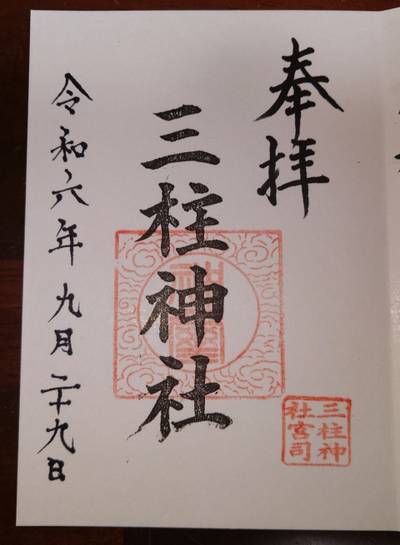 奉拝
三柱神社
三柱神
社宮司
令和六年九月二十九日